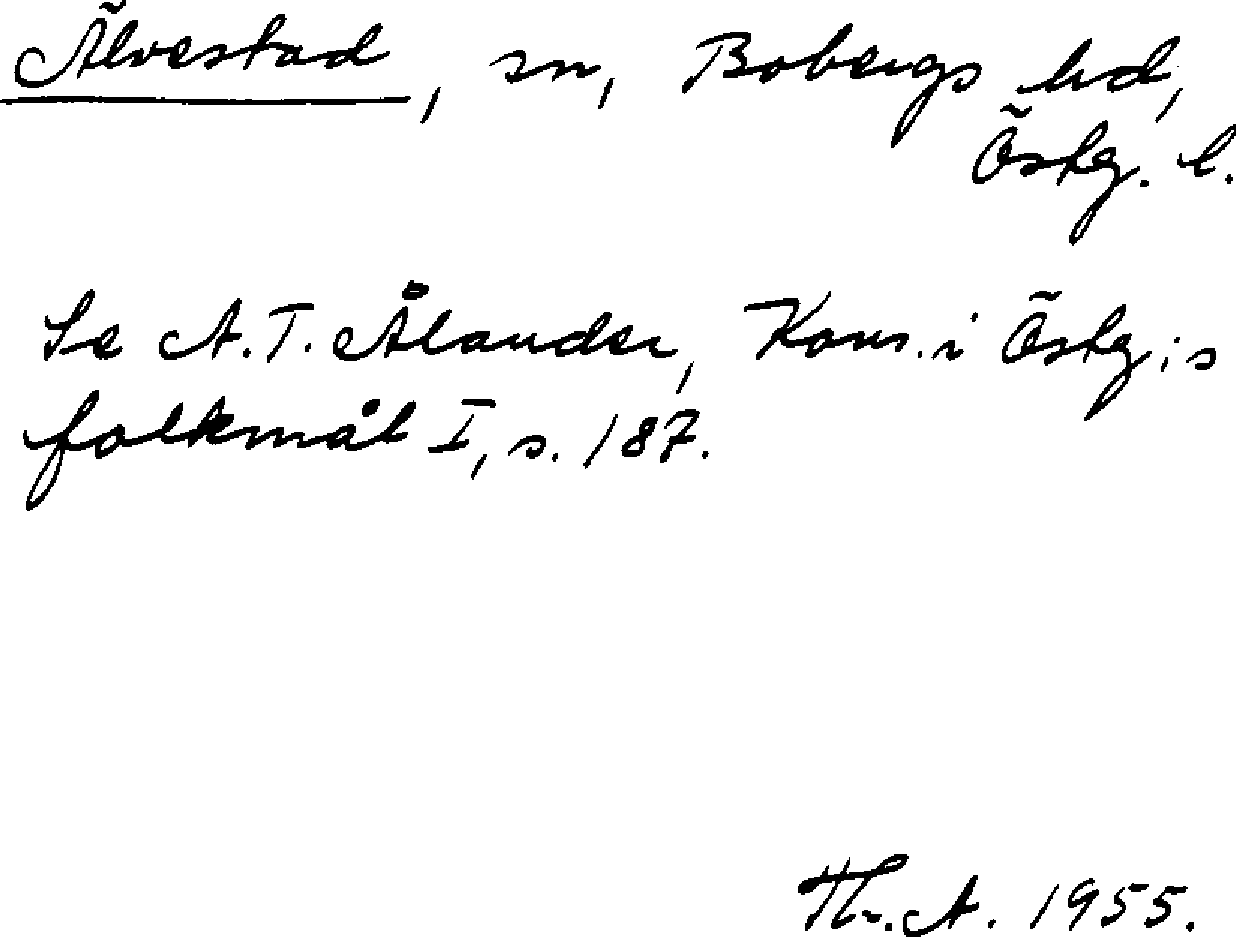 Älvestad, sn, Bobergs hd,
Östg. l.
Se A. T. Ålander, Kons. i Östg:s
folkmål I, s. 187.
Th. A. 1955.